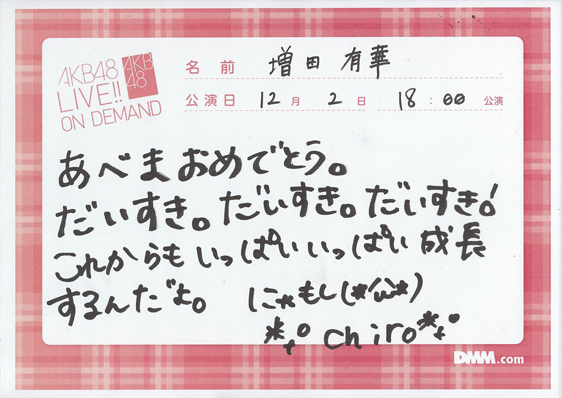 AKB48
LIVE!!
ON DEMAND
AKB
48
名前 増田 有華
公演日 12月 2日 18:00 公演
あべまおめでとう。
だいすき。だいすき。だいすき!
これからもいっぱいいっぱい成長
するんだよ。 にゃもし(*'ω'*)
*+° chiro *+°
DMM.com